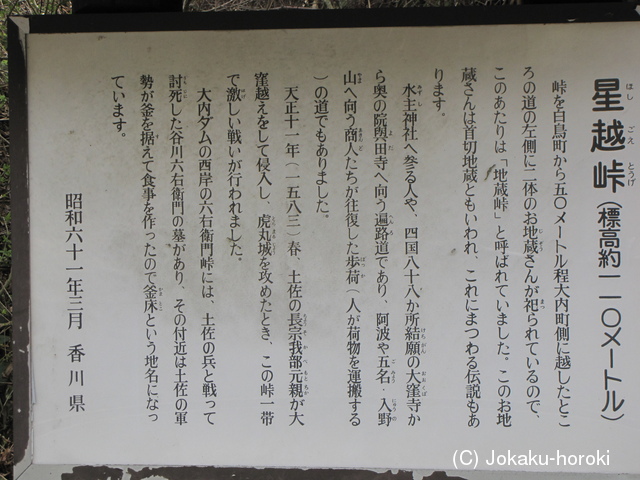 星越峠(標高約一一〇メートル)
峠を白鳥町から五〇メートル程大内町側に越したとこ
ろの道の左側に二体のお地蔵さんが祀られているので、
このあたりは「地蔵峠」と呼ばれていました。このお地
蔵さんは首切地蔵ともいわれ、これにまつわる伝説もあ
ります。
水主神社へ参る人や、四国八十八か所結願の大窪寺か
ら奥の院與田寺へ向う遍路道であり、阿波や五名・入野
山へ向う商人たちが往復した歩荷(人が荷物を運搬する
)の道でもありました。
天正十一年(一五八三)春、土佐の長宗我部元親が大
窪越えをして侵入し、虎丸城を攻めたとき、この峠一帯
で激しい戦いが行われました。
大内ダムの西岸の六右衛門峠には、土佐の兵と戦って
討死した谷川六右衛門の墓があり、その付近は土佐の軍
勢が釜を据えて食事を作ったので釜床という地名になっ
ています。
昭和六十一年三月 香川県
(C) Jokaku-horoki